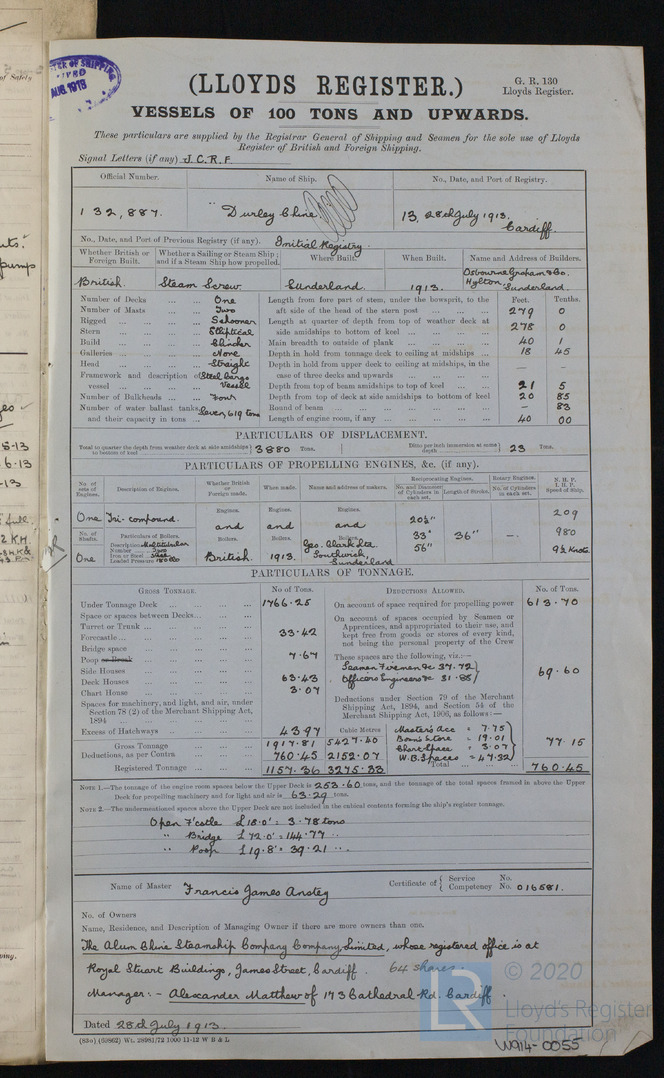 AUG 1913
(LLOYDS REGISTER.)
G. R. 130
Lloyds Register.
VESSELS OF 100 TONS AND UPWARDS.
These particulars are supplied by the Registrar General of Shipping and Seamen for the sole use of Lloyds
Register of British and Foreign Shipping.
Signal Letters (if any) J.C.R.F.
Official Number. Name of Ship. No., Date, and Port of Registry.
132,887. "Durley Chine 13, 28th July 1913.
Cardiff.
No., Date, and Port of Previous Registry (if any). Initial Registry.
Whether British or Foreign Built. Whether a Sailing or Steam Ship; and if a Steam Ship how propelled. Where Built. When Built. Name and Address of Builders.
British. Steam Screw Sunderland 1913. Osbourne Graham & Co. Hylton, Sunderland.
Number of Decks ... One Length from fore part of stem, under the bowsprit, to the Feet. Tenths.
Number of Masts ... Two aft side of the head of the stern post ... 279 0
Rigged ... Schooner Length at quarter of depth from top of weather deck at
Stern ... Elliptical side amidships to bottom of keel ... 278 0
Build ... Clincher Main breadth to outside of plank ... 40 1
Galleries ... None Depth in hold from tonnage deck to ceiling at midships ... 18 45
Head ... Straight Depth in hold from upper deck to ceiling at midships, in the
Framework and description of vessel ... Steel Cargo Vessel case of three decks and upwards ... — —
Depth from top of beam amidships to top of keel ... 21 5
Number of Bulkheads ... Four Depth from top of deck at side amidships to bottom of keel 20 85
Number of water ballast tanks, and their capacity in tons ... Seven, 619 tons Round of beam ... — 83
Length of engine room, if any ... 40 00
PARTICULARS OF DISPLACEMENT.
Total to quarter the depth from weather deck at side amidships to bottom of keel 3880 Tons. Ditto per inch immersion at same depth 23 Tons.
PARTICULARS OF PROPELLING ENGINES, &c. (if any).
No. of sets of Engines. Description of Engines. Whether British or Foreign made. When made. Name and address of makers. Reciprocating Engines. Rotary Engines. N.H.P. I.H.P. Speed of Ship.
No. and Diameter of Cylinders in each set. Length of Stroke. No. of Cylinders in each set.
Engines. Engines. Engines.
One Tri-compound. and and and 20½" 209
No. of Shafts. Particulars of Boilers. Boilers. Boilers. Boilers. 33" 36" —. 980
Description Multitubular
Number Two
Iron or Steel Steel
Loaded Pressure 180 lbs
One British. 1913. Geo. Clark Ltd. Southwick, Sunderland 56" 9½ Knots
PARTICULARS OF TONNAGE.
GROSS TONNAGE. No. of Tons. DEDUCTIONS ALLOWED. No. of Tons.
Under Tonnage Deck ... 1766.25 On account of space required for propelling power 613.70
Space or spaces between Decks ... On account of spaces occupied by Seamen or
Turret or Trunk ... Apprentices, and appropriated to their use, and
Forecastle ... 33.42 kept free from goods or stores of every kind,
Bridge space not being the personal property of the Crew
Poop or Break ... 7.67 These spaces are the following, viz.:—
Side Houses ... Seamen Firemen &c 37.72
Deck Houses ... 63.43 Officers Engineers &c 31.88 69.60
Chart House ... 3.07
Spaces for machinery, and light, and air, under Section 78 (2) of the Merchant Shipping Act, 1894 ... Deductions under Section 79 of the Merchant Shipping Act, 1894, and Section 54 of the Merchant Shipping Act, 1906, as follows:—
Excess of Hatchways ... 43.97 Cubic Metres Master's Acc = 7.75
Gross Tonnage 1917.81 5427.40 Bosn's Store = 19.01
Deductions, as per Contra ... 760.45 2152.07 Chart Space = 3.07 77.15
W.B. Spaces = 47.32
Registered Tonnage ... 1157.36 3275.33 Total ... 760.45
NOTE 1.—The tonnage of the engine room spaces below the Upper Deck is 253.60 tons, and the tonnage of the total spaces framed in above the Upper
Deck for propelling machinery and for light and air is 63.29 tons.
NOTE 2.—The undermentioned spaces above the Upper Deck are not included in the cubical contents forming the ship's register tonnage.
Open F'castle £18.0' = 3.78 tons
" Bridge £72.0' = 144.77 "
" Poop £19.8' = 39.21 "
Name of Master Francis James Anstey Certificate of { Service No. Competency No. 016581.
No. of Owners
Name, Residence, and Description of Managing Owner if there are more owners than one.
The Alum Chine Steamship Company Company, Limited, whose registered office is at
Royal Stuart Buildings, James Street, Cardiff. 64 shares.
Manager:- Alexander Matthew of 173 Cathedral Rd. Cardiff.
Dated 28th July 1913.
(83o) (59862) Wt. 28981/72 1000 11-12 W B & L
© 2020
LR
Lloyd's Register
Foundation
W914-0055